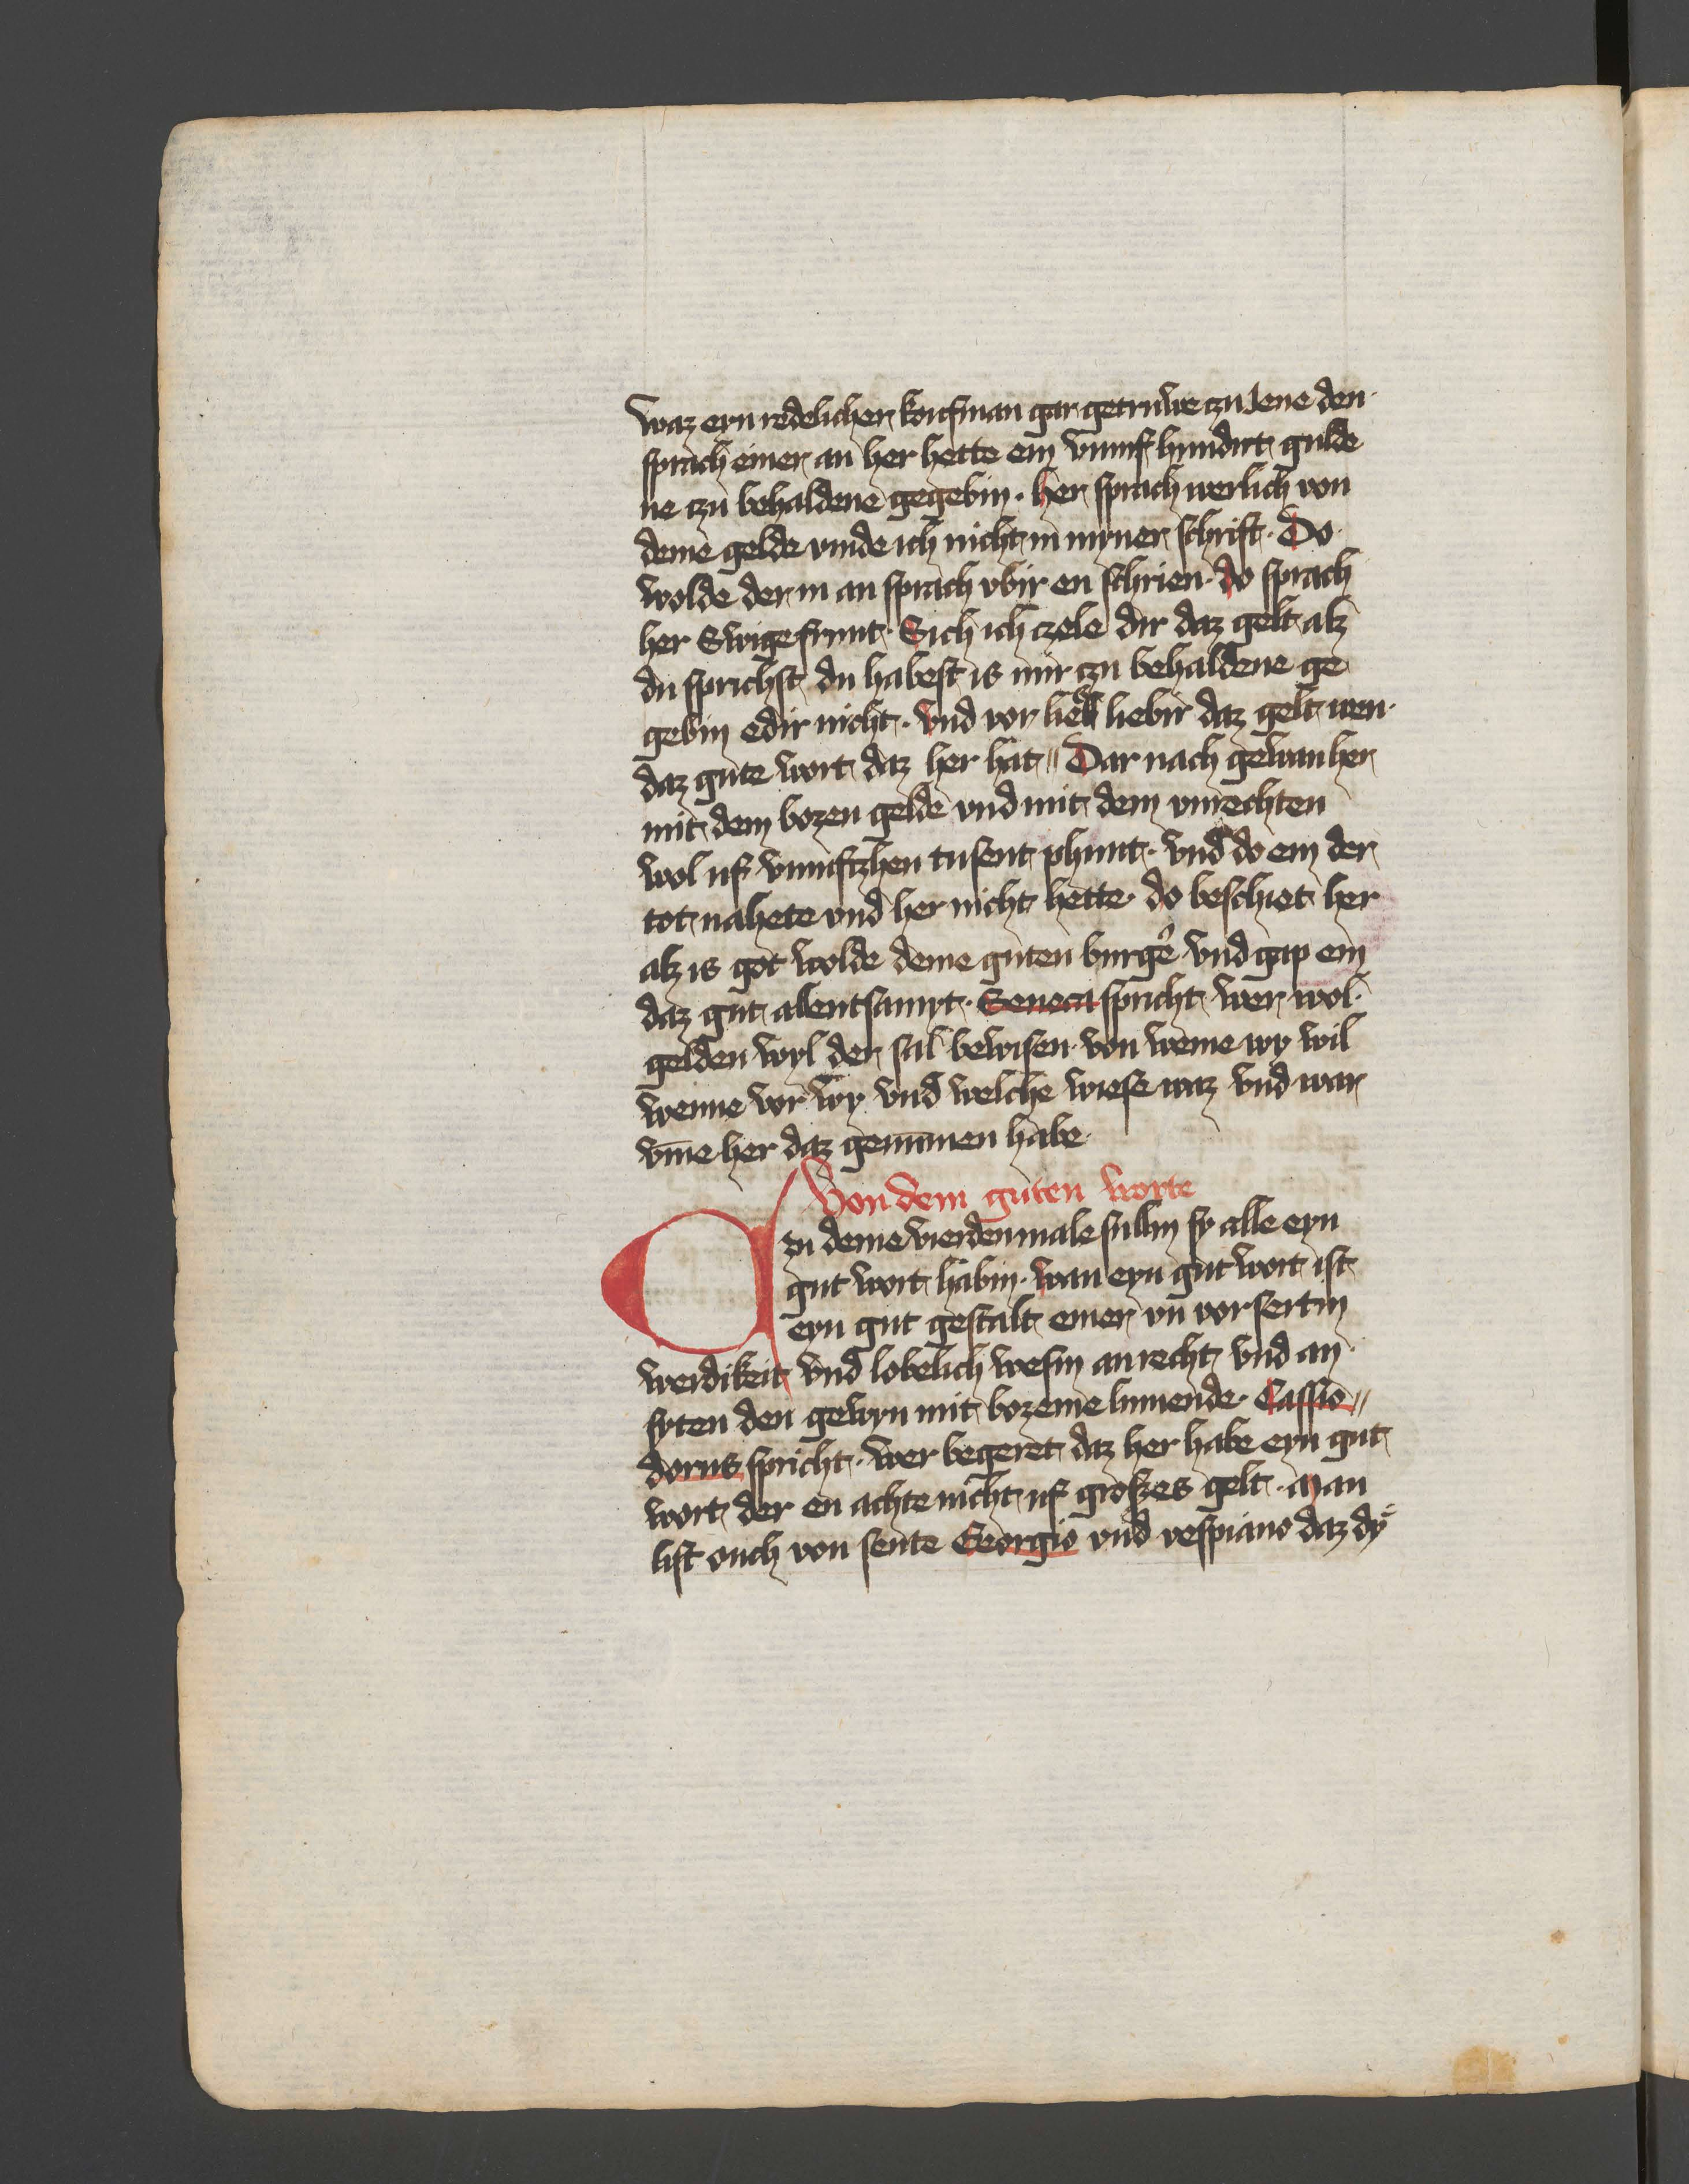 waz eyn redelicher koufman gar getruwe czu Jene den
sprach einer an her hette em vnmf hundirt gulde
ne czu behaldene gegebin. her sprach werlich von
deme gelde vinde ich nicht in myner schrift. Do
wolde der in an sprach vbir en schrien. do sprach
her Swige frunt. Sich ich czele dir daz gelt alz
du sprichst du habest is mir czu behaldene ge
gebin edir nicht. vnd vor ließ liebir daz gelt wen
daz gute wort daz her hat„ Dar nach gewan her
mit dem bozen gelde vnd mit dem vnrechten
wol uf vnmfczhen tusent phunt. vnd do em der
tot nahete vnd her nicht hette. do beschiet her
alz is got wolde deme guten burge᷑ vnd gap em
daz gut alentsamyt. Seneca spricht wer wol
gelden wyl der sal bewisen von weme wy wil
wenne vor wy vnd welche wiese waz vnd war
vm̄e her daz genūmen habe
Von dem guten worte
Czu deme vierdenmale sullin sy alle eyn
gut wort habin. wan eyn gut wort ist
eyn gut gestalt einer vn vorsertin
werdikeit vnd lobelich wesin an recht vnd an
syten den gewyn mit bozeme lumende. Cassio„
dorus spricht. wer begeret daz her habe eyn gut
wort der en achte nicht uf groszes gelt. Man
list ouch von sente Georgio vnd vespiano daz dy